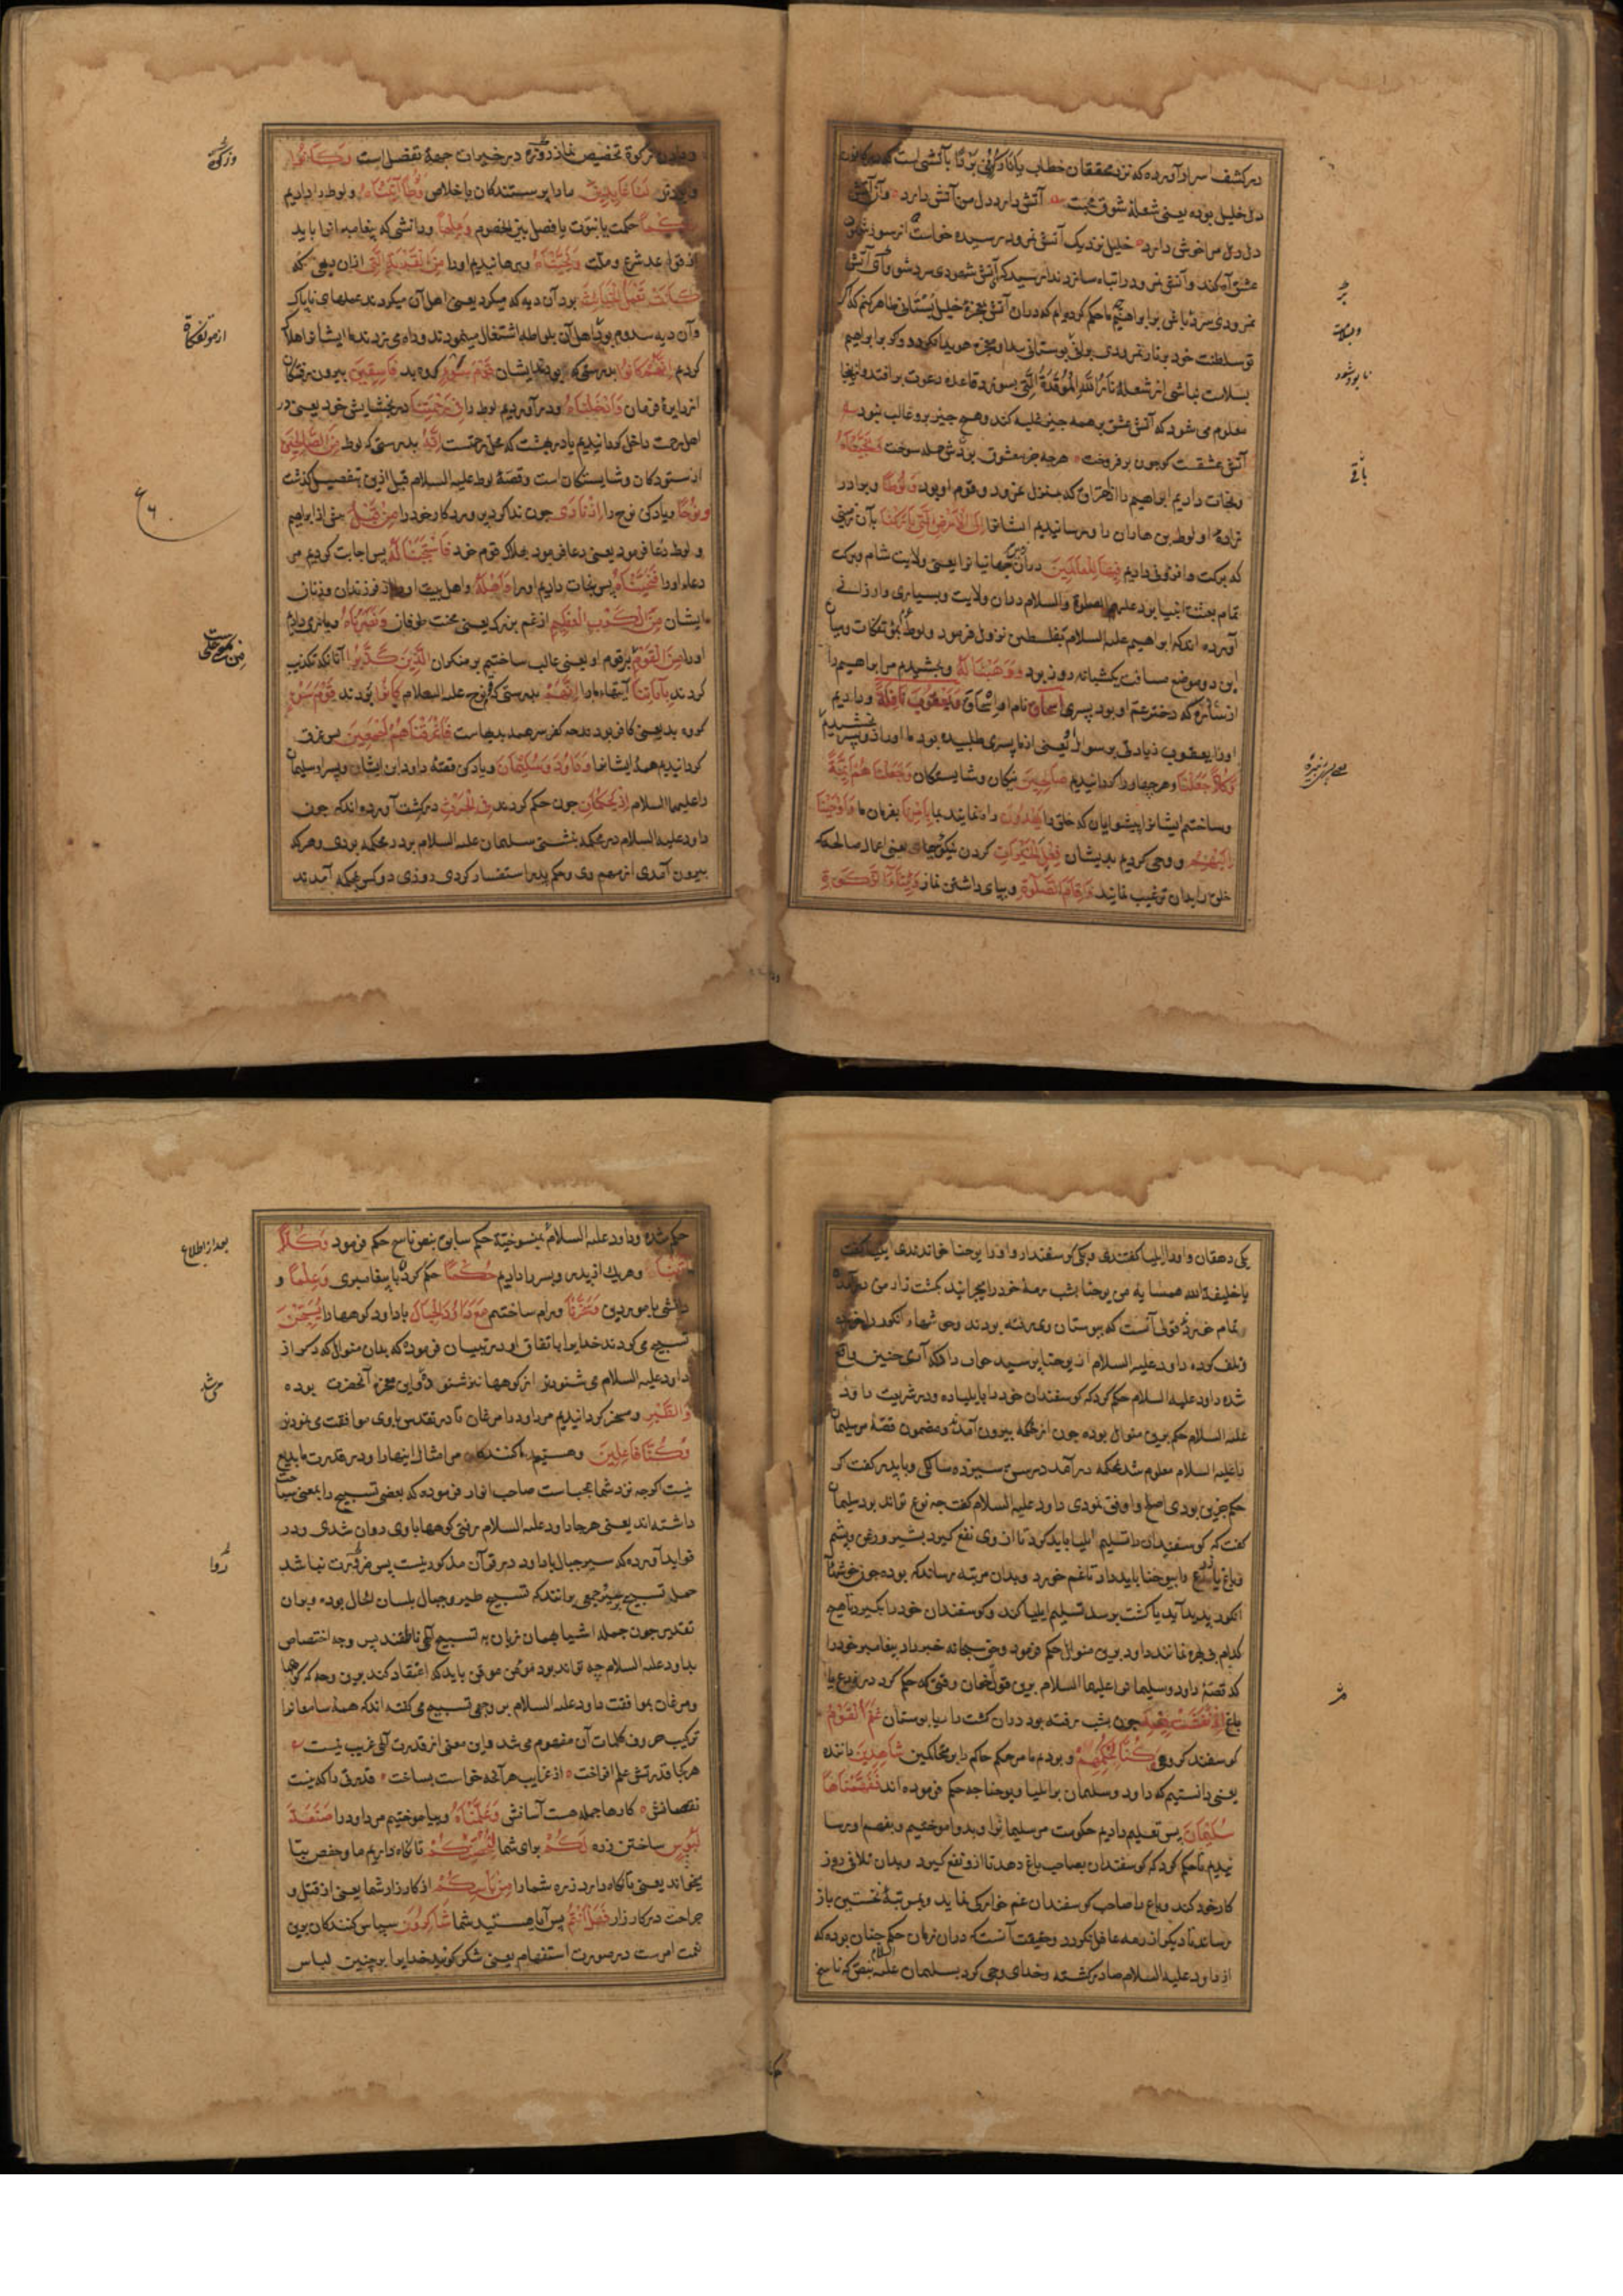 در کشف اسرار آورده که نزد محققان خطاب یا نار کونی بردا با آتشی است که در کانون
دل خلیل بوده یعنی شعلهٔ شوق محبت آتش دارد دل من آتش دارد
دل دل مرا خوش دارد خلیل نزدیک آتش نمرود رسیده خواست از سوز
عشق آه کند و آتش نمرود را تباه سازد ندا رسید که آتش شهودی سرد شو
نمرودی سرد باش بر ابراهیم ما حکم کرده‌ایم که در آن آتش معجزهٔ خلیل بستانی ظاهر کنم که اگر
تو سلطنت خود بنار نمرودی بوستانی معجزه هویدا نکردد و کو بر ابراهیم
بسلامت نباشی از شعلهٔ نار الله الموقدة التی بسوزد قاعده دعوت برافتد و اینجا
معلوم می شود که آتش عشق بر همه چیز غلبه کند و هیچ چیز برو غالب نبود
آتش عشقست کو چون بر فروخت هرچه جز معشوق بودش جمله سوخت و نجیناه
و نجات دادیم ابراهیم را از منزل نمرود و قوم او بود و لوطا و برادر
زادهٔ او لوط بن هاران را و رسانیدیم ایشانرا الی الارض التی بارکنا بآن زمینی
که برکت و افزونی دادیم فیها للعالمین در آن جهانیانرا یعنی ولایت شام و برکت
تمام بعثت انبیا بود علیهم الصلوة والسلام در آن ولایت و بسیاری و ارزانی
آورده اند که ابراهیم علیه السلام بفلسطین نزول فرمود و لوط بمؤتفکات و میان
این دو موضع مسافت یکشبانه روز بود و وهبنا له و بخشیدیم مر ابراهیم را
از ساره که دختر عم او بود پسری اسحاق نام اسحاق و یعقوب نافلة و دادیم
اورا یعقوب زیادتی بر سوال یعنی از ما پسری طلبیده بود ما اورا
و کلا جعلنا و هر چهار را کردانیدیم صالحین نیکان و شایستکان و جعلناهم ائمة
و ساختیم ایشانرا پیشوایان که خلق را یهدون راه نمایند بامرنا بفرمان ما و اوحینا
الیهم و وحی کردیم بدیشان فعل الخیرات کردن نیکوییها یعنی اعمال صالحه که
خلق را بدان ترغیب نمایند و اقام الصلوة و بپای داشتن نماز و ایتاء الزکوة
بر
و بسلامت
نابود شود
باقی
و دادن زکوة تخصیص نماز و زکوة در خیرات جهة تفضل است و کانوا
و بودند لنا عابدین مارا پرستندکان باخلاص و لوطا اتیناه و لوط را دادیم
حکما حکمت یا نبوت یا فصل بین الخصوم و علما و دانشی که پیغامبرانرا باید
از قواعد شرع و ملت و نجیناه و برهانیدیم اورا من القریة التی ازان دیهی که
کانت تعمل الخبائث بود آن دیه که میکرد یعنی اهل آن میکردند عملهای ناپاک
و آن دیه سدوم بود اهل آن بلواطه اشتغال مینمودند و راه می زدند ما ایشانرا هلاک
کردیم انهم کانوا بدرستی که بودند ایشان قوم سوء کروه بد فاسقین بیرون رفتکان
از دایرهٔ فرمان و ادخلناه و در آوردیم لوط را فی رحمتنا در بخشایش خود یعنی در
اهل رحمت داخل کردانیدیم یا در بهشت که محل رحمتست انه بدرستی که لوط من الصالحین
از ستودکان و شایستکان است و قصهٔ لوط علیه السلام قبل ازین بتفصیل کذشت
و نوحا و یاد کن نوح را اذ نادی چون ندا کرد پروردکار خود را من قبل پیش از ابراهیم
و لوط دعا فرمود یعنی دعا فرمود بهلاک قوم خود فاستجبنا له پس اجابت کردیم مر
دعاء اورا فنجیناه پس نجات دادیم اورا و اهله و اهل بیت او را از فرزندان و زنان
ایشان من الکرب العظیم از غم بزرک یعنی محنت طوفان و نصرناه و یاری دادیم
اورا من القوم بر قوم او یعنی غالب ساختیم بر منکران الذین کذبوا آنانکه تکذیب
کردند بایاتنا آیتهاء مارا انهم بدرستی که قوم نوح علیه السلام کانوا بودند قوم سوء
کروه بد یعنی کافر بودند چه کفر سر همه بدیهاست فاغرقناهم اجمعین پس غرق
کردانیدیم همهٔ ایشانرا و داود و سلیمان و یاد کن قصهٔ داود بن ایشا و پسر او سلیمان
را علیهما السلام اذ یحکمان چون حکم کردند فی الحرث در کشت آورده اند که چون
داود علیه السلام در محکمه نشستی سلیمان علیه السلام بر در محکمه بودی و هر که
بیرون آمدی از مهم وی و حکم پدر استفسار کردی روزی دو کس بمحکمه آمدند
و زکوة
از موتفکات
ع
یکی دهقان و اورا ایلیا کفتندی و یکی کوسفنددار و اورا یوحنا خواندندی ایلیا کفت
یا خلیفة الله همسایه من یوحنا بشب رمهٔ خود را بچرانید بکشت زار من در آمده
تمام خورده قولی آنست که ببوستان وی رفته بودند و خوشهاء انکور را خورده
و تلف کرده داود علیه السلام از یوحنا پرسید جواب داد که آری چنین واقع
شده داود علیه السلام حکم کرد که کوسفندان خود را بایلیا ده و در شریعت داود
علیه السلام حکم برین منوال بوده چون از محکمه بیرون آمدند و مضمون قصه بر سلیمان
علیه السلام معلوم شد بمحکمه در آمد در سن سیزده سالکی و با پدر کفت که
حکم جزین بودی اصلح و اوفق نمودی داود علیه السلام کفت چه نوع تواند بود سلیمان
کفت که کوسفندان را تسلیم ایلیا باید کرد تا از وی نفع کیرد بشیر و روغن و پشم
و باغ یا زرع را بیوحنا باید داد تا غم خورد و بدان مرتبه رساند که بوده چون خوشهاء
انکور پدید آید یا کشت برسد تسلیم ایلیا کند و کوسفندان خود را بکیرد تا هیچ
کدام بی بهره نمانند داود برین منوال حکم فرمود و حق سبحانه خبر داد پیغامبر خود را
که قصهٔ داود و سلیمانرا علیهما السلام برین قوم بخوان وقتی که حکم کرد در زرع یا
باغ اذ نفشت فیه چون بشب رفته بود در آن کشت یا بوستان غنم القوم
کوسفند کروهی و کنا لحکمهم و بودیم ما مر حکم حاکم را و محاکمین شاهدین داننده
یعنی دانستیم که داود و سلیمان بر ایلیا و یوحنا چه حکم فرموده اند ففهمناها
سلیمان پس تعلیم دادیم حکومت مر سلیمانرا و بدو آموختیم و بفهم او رسا
نیدیم تا حکم کرد که کوسفندان بصاحب باغ دهد تا ازو نفع کیرد و بدان تلافی روز
کار خود کند و باغ را صاحب کوسفندان غم خوارکی نماید و بمرتبهٔ نخستین باز
رساند تا دیکر از رمه غافل نکردد و حقیقت آنست که در آن زمان حکم چنان بوده که
از داود علیه السلام صادر کشته و خدای وحی کرد بسلیمان علیه السلام بنص که ناسخ
حکم شده و داود علیه السلام بمنسوخیة حکم سابق بنص ناسخ حکم فرمود و کلا
اتینا و هر یک از پدر و پسر را دادیم حکما حکم کردن یا پیغامبری و علما و
دانشی بامور دین و سخرنا و رام ساختیم مع داود الجبال با داود کوهها را یسبحن
تسبیح می کردند خدایرا باتفاق او در تبیان فرموده که بدان منوال که ذکر از
داود علیه السلام می شنودند از کوهها نیز شنودندی و این معجزهٔ آنحضرت بوده
والطیر و مسخر کردانیدیم مر داود را مرغان تا در تقدیس با وی موافقت می نمودند
و کنا فاعلین و هستیم ما کنندکان مر امثال اینها را و در قدرت ما بدیع
نیست اکرچه نزد شما عجب است صاحب انوار فرموده که بعضی تسبیح را بمعنی سباحت
داشته اند یعنی هر جا داود علیه السلام رفتی کوهها با وی روان شدی و در
فواید آورده که سیر جبال با داود در قرآن مذکور نیست پس ضرورت نباشد
حمل تسبیح بر سیر جمعی برانند که تسبیح طیر و جبال بلسان الحال بوده و بران
تقدیر چون جمله اشیا بهمان زبان به تسبیح الهی ناطقند پس وجه اختصاص
بداود علیه السلام چه تواند بود مومن موقن باید که اعتقاد کند برین وجه که کوهها
و مرغان بموافقت داود علیه السلام بر وجهی تسبیح می کفته اند که همهٔ سامعانرا
ترکیب حروف و کلمات آن مفهوم می شد و این معنی از قدرت الهی غریب نیست
هر کجا قدرتش علم افراخت از غرایب هر آنچه خواست بساخت قدرتی را که نیست
نقصانش کارها جمله هست آسانش و علمناه و بیاموختیم مر داود را صنعة
لبوس ساختن زره لکم برای شما لتحصنکم تا نکاه داریم ما و حفص بیا
میخواند یعنی تا نکاه دارد زره شما را من باسکم از کارزار شما یعنی از قتل و
جراحت در کارزار فهل انتم پس آیا هستید شما شاکرون سپاس کنندکان برین
نعمت امرست در صورت استفهام یعنی شکر کویید خدایرا بر چنین لباس
بعد از اطلاع
می شد
روا